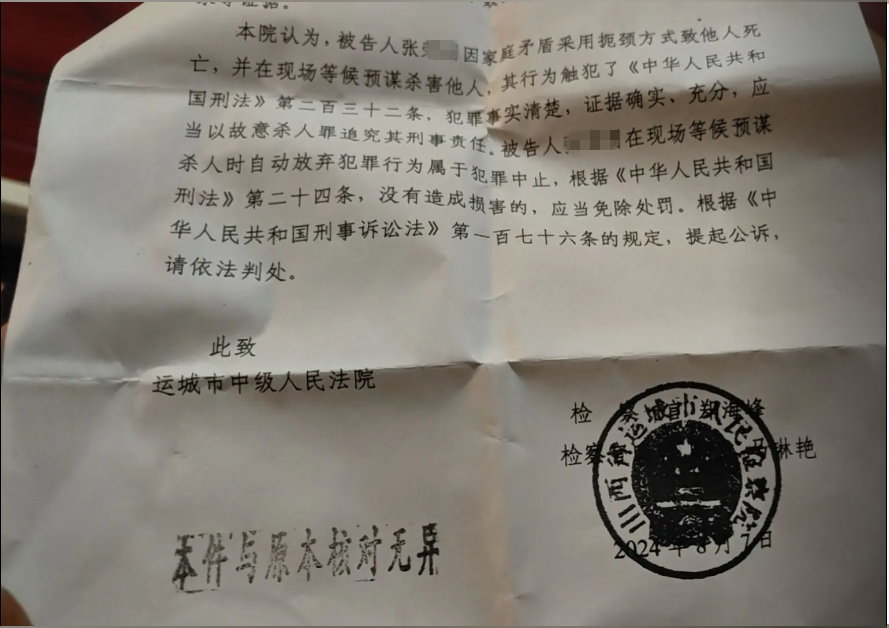 本院认为，被告人张 因家庭矛盾采用扼颈方式致他人死
亡，并在现场等候预谋杀害他人，其行为触犯了《中华人民共和
国刑法》第二百三十二条，犯罪事实清楚，证据确实、充分，应
当以故意杀人罪追究其刑事责任。被告人 在现场等候预谋
杀人时自动放弃犯罪行为属于犯罪中止，根据《中华人民共和国
刑法》第二十四条，没有造成损害的，应当免除处罚。根据《中
华人民共和国刑事诉讼法》第一百七十六条的规定，提起公诉，
请依法判处。
此致
运城市中级人民法院
检 察 官 郑海峰
检察官 马琳艳
山西省运城市人民检察院
2024年8月7日
本件与原本核对无异